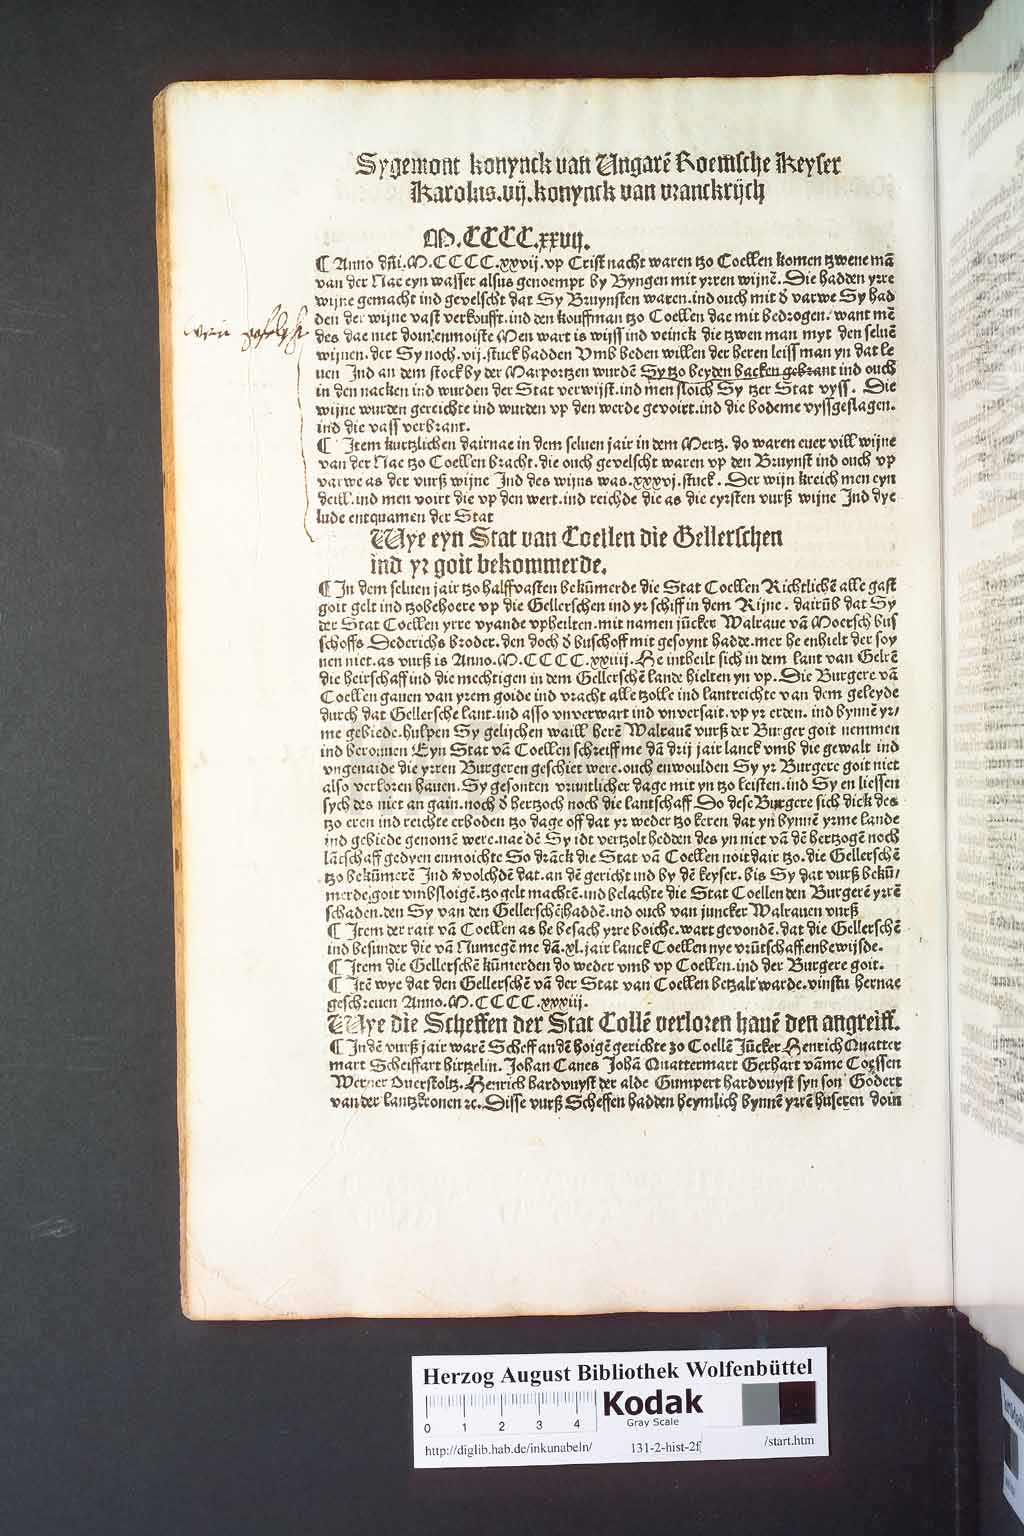 Sygemont konynck van Ungarē Roemsche Keyser
Karolus.vij.konynck van vranckrijch
M.CCCC.xxvij.
¶ Anno dn̄i.M.CCCC.xxvij.vp Crist nacht waren tzo Coellen komen tzwene mā
van der Nae eyn wasser alsus genoempt by Byngen mit yrren wijnē. Die hadden yrre
wijne gemacht ind gevelscht dat Sy Bruynsten waren.ind ouch mit d̄ varwe Sy had
den der wijne vast verkoufft.ind den kouffman tzo Coellen dae mit bedrogen. want mē
des dae niet dom enmoiste Men wart is wijss ind veinck die tzwen man myt den seluē
wijnen.der Sy noch.vij.stuck hadden Vmb beden willen der heren leiss man yn dat le
uen Ind an dem stock by der Marportzen wurdē Sy tzo beyden backen gebrant ind ouch
in den nacken ind wurden der Stat verwijst.ind men sloich Sy tzer Stat vyss. Die
wijne wurden gereichte ind wurden vp den werde gevoirt.ind die bodeme vyssgeslagen.
ind die vass verbrant.
¶ Item kurtzlichen dairnae in dem seluen jair in dem Mertz. do waren euer vill wijne
van der Nae tzo Coellen bracht.die ouch gevelscht waren vp den Bruynst ind ouch vp
varwe as der vurß wijne Ind des wijns was.xxxvj.stuck. Der wijn kreich men eyn
deill.ind men voirt die vp den wert.ind reichde die as die eyrsten vurß wijne Ind dye
lude entquamen der Stat
Wye eyn Stat van Coellen die Gellerschen
ind yr goit bekommerde.
¶ In dem seluen jair tzo halffvasten bekūmerde die Stat Coellen Richtlichē alle gast
goit gelt ind tzobehoere vp die Gellerschen ind yr schiff in dem Rijne. dairūb dat Sy
der Stat Coellen yrre vyande vpheilten.mit namen jūcker Walraue vā Moersch bus
schoffs Dederichs broder.den doch d̄ buschoff mit gesoynt hadde.mer he enhielt der soy
nen niet.as vurß is Anno.M.CCCC.xxiiij.He intheilt sich in dem lant van Gelrē
die heirschaff ind die mechtigen in dem Gellerschē lande hielten yn vp.Die Burgere vā
Coellen gauen van yrem goide ind vracht alle tzolle ind lantreichte van dem geleyde
durch dat Gellersche lant.ind asso vnverwart ind vnversait.vp yr erden. ind bynnē yr/
me gebiede.hulpen Sy gelijchen waill herē Walrauē vurß der Burger goit nemmen
ind berouuen Eyn Stat vā Coellen schreiff me dā drij jair lanck vmb die gewalt ind
vngenaide die yrren Burgeren geschiet were.ouch enwoulden Sy yr Burgere goit niet
also verloren hauen.Sy gesonten vruntlicher dage mit yn tzo leisten.ind Sy en liessen
sych des niet an gain.noch d̄ hertzoch noch die lantschaff Do dese Burgere sich dick des
tzo eren ind reichte erboden tzo dage off dat yr weder tzo keren dat yn bynnē yrme lande
ind gebiede genomē were.nae dē Sy idt vertzolt hedden des yn niet vā dē hertzogē noch
lātschaff gedyen enmoichte So drāck die Stat vā Coellen noit dair tzo.die Gellerschē
tzo bekūmerē Ind v̄volchdē dat.an dē gericht ind by dē keyser.bis Sy dat vurß bekū/
merde goit vmbsloigē.tzo gelt machtē.ind belachte die Stat Coellen den Burgerē yrrē
schaden.den Sy van den Gellerschē haddē.ind ouch van juncker Walrauen vurß
¶ Item der rait vā Coellen as he besach yrre boiche.wart gevondē.dat die Gellerschē
ind besunder die vā Numegē me dā.xl.jair lanck Coellen nye vrūtschaff enbewijsde.
¶ Item die Gellerschē kūmerden do weder vmb vp Coellen.ind der Burgere goit.
¶ Itē wye dat den Gellerschē vā der Stat van Coellen betzalt warde.vinstu hernae
geschreuen Anno.M.CCCC.xxxiij.
Wye die Scheffen der Stat Collē verloren hauē den angreiff.
¶ In dē vurß jair warē Scheffan dē hoigē gerichte zo Coellē Jūcker Henrich Quatter
mart Scheiffart hirtzelin. Johan Canes Johā Quattermart Gerhart vāme Coessen
Werner Ouerstoltz.Henrich hardvuyst der alde Gumpert hardvuyst syn son Gōdert
van der lantzkronen ⁊c.Disse vurß Scheffen hadden heymlich bynnē yrrē huseren doin
Herzog August Bibliothek Wolfenbüttel
0 1 2 3 4
Kodak
Gray Scale
http://diglib.hab.de/inkunabeln/ 131-2-hist-2f /start.htm